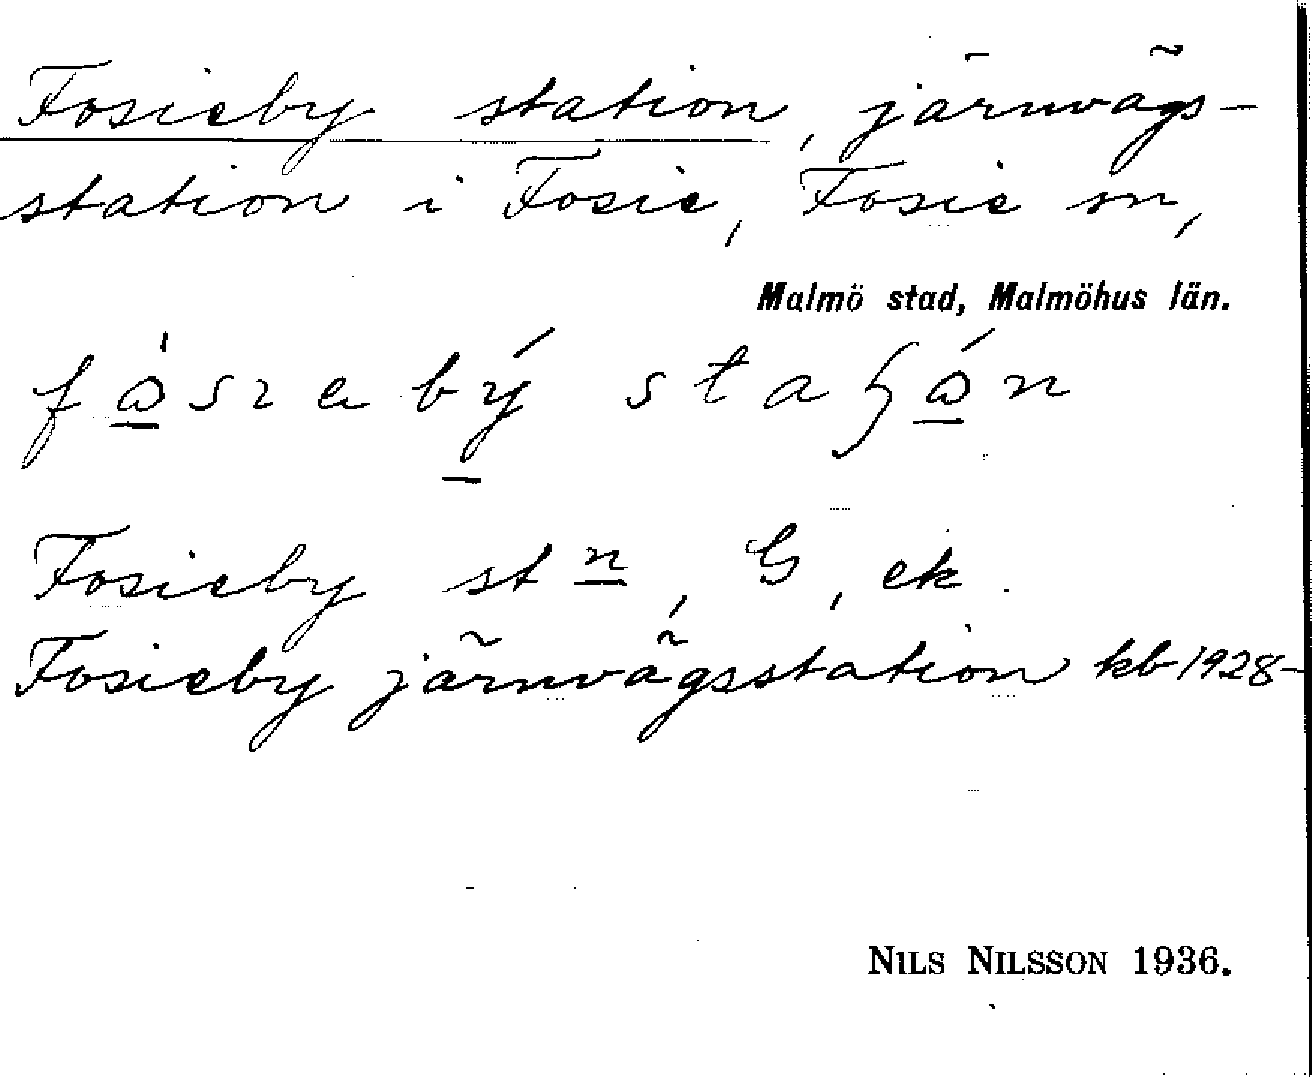 Fosieby station, järnvägs-
station i Fosie, Fosie sn,
Malmö stad, Malmöhus län.
Fosieby st n, G, ek.
Fosieby järnvägsstation kb 1928-
NILS NILSSON 1936.